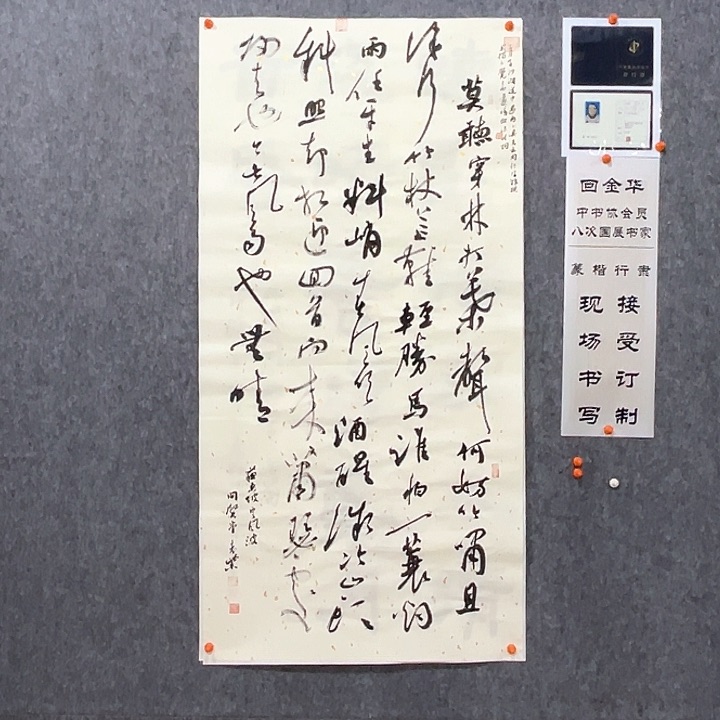 莫聽穿林打葉聲何妨吟嘯且
徐行竹杖芒鞋輕勝馬誰怕一蓑烟
雨任平生料峭春風吹酒醒微冷山頭
斜照却相迎回首向来蕭瑟處
归去也無風雨也無晴
蘇東坡定風波
回金华
中书协会员
八次国展书家
篆楷行隶
现场书写
接受订制